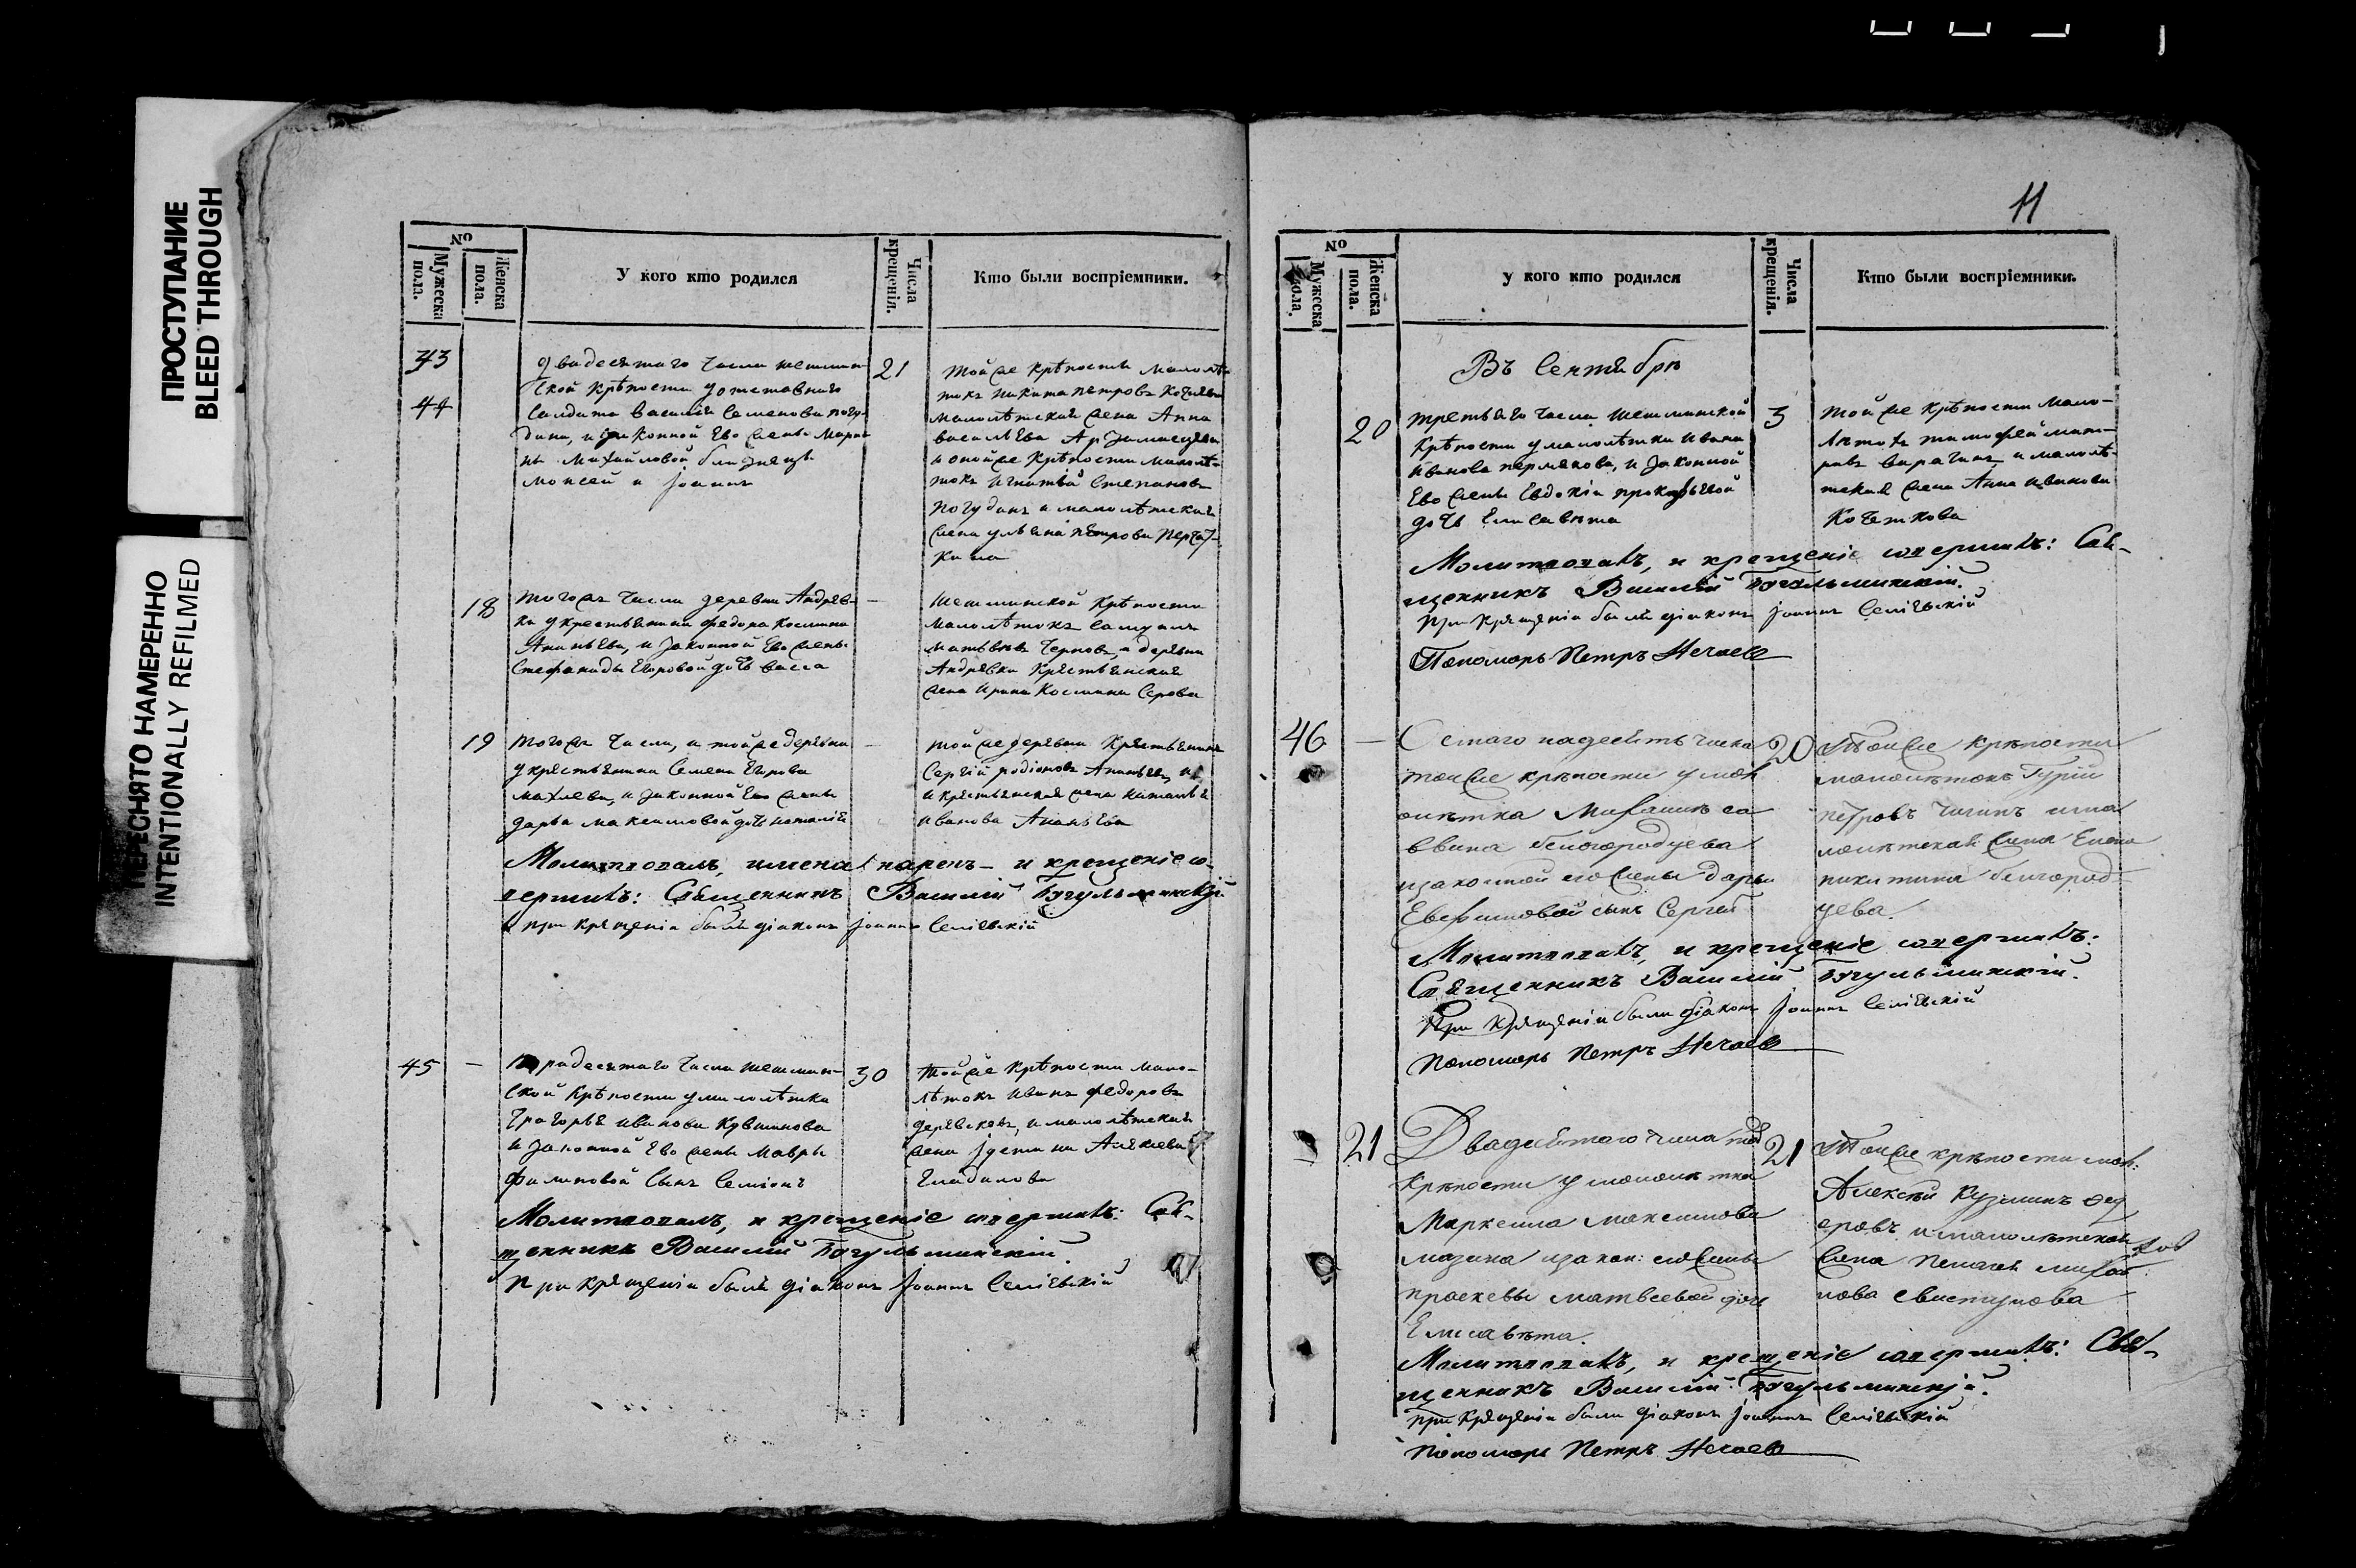 ПРОСТУПАНИЕ
BLEED THROUGH
ПЕРЕСНЯТО НАМЕРЕННО
INTENTIONALLY REFILMED
№
Мужеска пола.
Женска пола.
У кого кто родился
Числа крещенія.
Кто были воспріемники.
43
44
двадесятаго числа шешмин-
ской крѣпости у отставнаго
салдата Василія Семенова погу-
дина, и законной Ево жены Мари-
ны Михайловой близнецы
Моисей и Іоаннъ
21
той же крѣпости малолѣ-
токъ Никита петровъ
малолѣтская жена Анна
васильева Арзамасцева
и оной же крѣпости малолѣ-
токъ Игнатій Степановъ
погудинъ и малолѣтская
жена ульяна петрова
18
того жъ числа деревни Андреев-
ки у крестьянина федора космина
Ананьева, и законной Ево жены
Стефаниды Егоровой дочь васса
шешминской крѣпости
малолѣтокъ
Матвѣевъ Черновъ, и деревни
Андреевки крестьянская
жена Ирина Космина Серова
19
того жъ числа, и той же деревни
у крестьянина Семена Егорова
и законной Ево жены
дарьи максимовой дочь наталія
той же деревни крестьянинъ
Сергій родіоновъ Ананьевъ, и
и крестьянская жена наталья
иванова Ананьева
Молитвовалъ, имена нарекъ и крещеніе со-
вершилъ: Священникъ Василій Бугульминскій
при крещеніи былъ діаконъ Іоаннъ Селіевскій
45
тридесятаго числа шешмин-
ской крѣпости у малолѣтка
Григорья иванова Кувшинова
и законной Ево жены Мавры
филиповой сынъ Семіонъ
30
той же крѣпости мало-
лѣтокъ иванъ федоровъ
и малолѣтская
жена Алексѣева
Молитвовалъ, и крещеніе совершилъ: Свя-
щенникъ Василій Бугульминскій
При крещеніи былъ діаконъ Іоаннъ Селіевскій
11
№
Мужеска пола.
Женска пола.
у кого кто родился
Числа крещенія.
Кто были воспріемники.
Въ Сентябрѣ
20
третьяго числа шешминской
крѣпости у малолѣтка ивана
иванова пермякова, и законной
Ево жены Евдокіи прокофьевой
дочь Елисавета
3
той же крѣпости мало-
лѣтокъ тимофей
и малолѣ-
тская жена Анна иванова
Кочеткова
Молитвовалъ, и крещеніе совершилъ: Свя-
щенникъ Василій Бугульминскій.
При крещеніи были діаконъ Іоаннъ Селіевскій
Пономарь Петръ Нечаевъ
46
Осмаго надесять числа
той же крѣпости у мал
олѣтка Михаила са
ввина белогородцева
и законной его жены Дарьи
Евфимовой сынъ Сергей
20
Той же крѣпости
малолѣтокъ Гурій
петровъ и ма
лолѣтская жена Елена
никитина белгород
цева.
Молитвовалъ, и крещеніе совершилъ:
Священникъ Василій Бугульминскій.
При крещеніи были діаконъ Іоаннъ Селіевскій
пономарь Петръ Нечаевъ
21
Двадцатаго числа той
Крѣпости у малолѣтка
Маркелла максимова
мазина и закон: его жены
праскевы матвеевой дочь
Елисавѣта.
21
Той же крѣпости мал:
Алексѣй Кузминъ фед
оровъ и малолѣтская
жена Пелагея
лова свистунова
Молитвовалъ, и крещеніе совершилъ: Свя-
щенникъ Василій Бугульминскій.
при крещеніи были діаконъ Іоаннъ Селіевскій
пономарь Петръ Нечаевъ